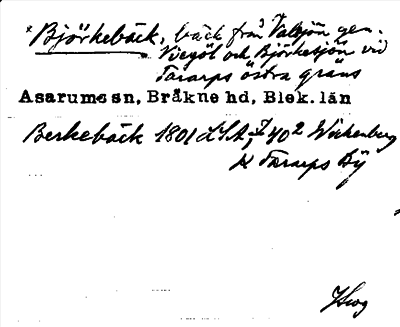 *Björkebäck, bäck från Valsjön gen.
Viegöl och Björkesjön vid
Tararps östra gräns
Asarums sn, Bräkne hd, Blek. län
Berkebäck 1801 LSA; 40² Wickenberg
k Tararps By